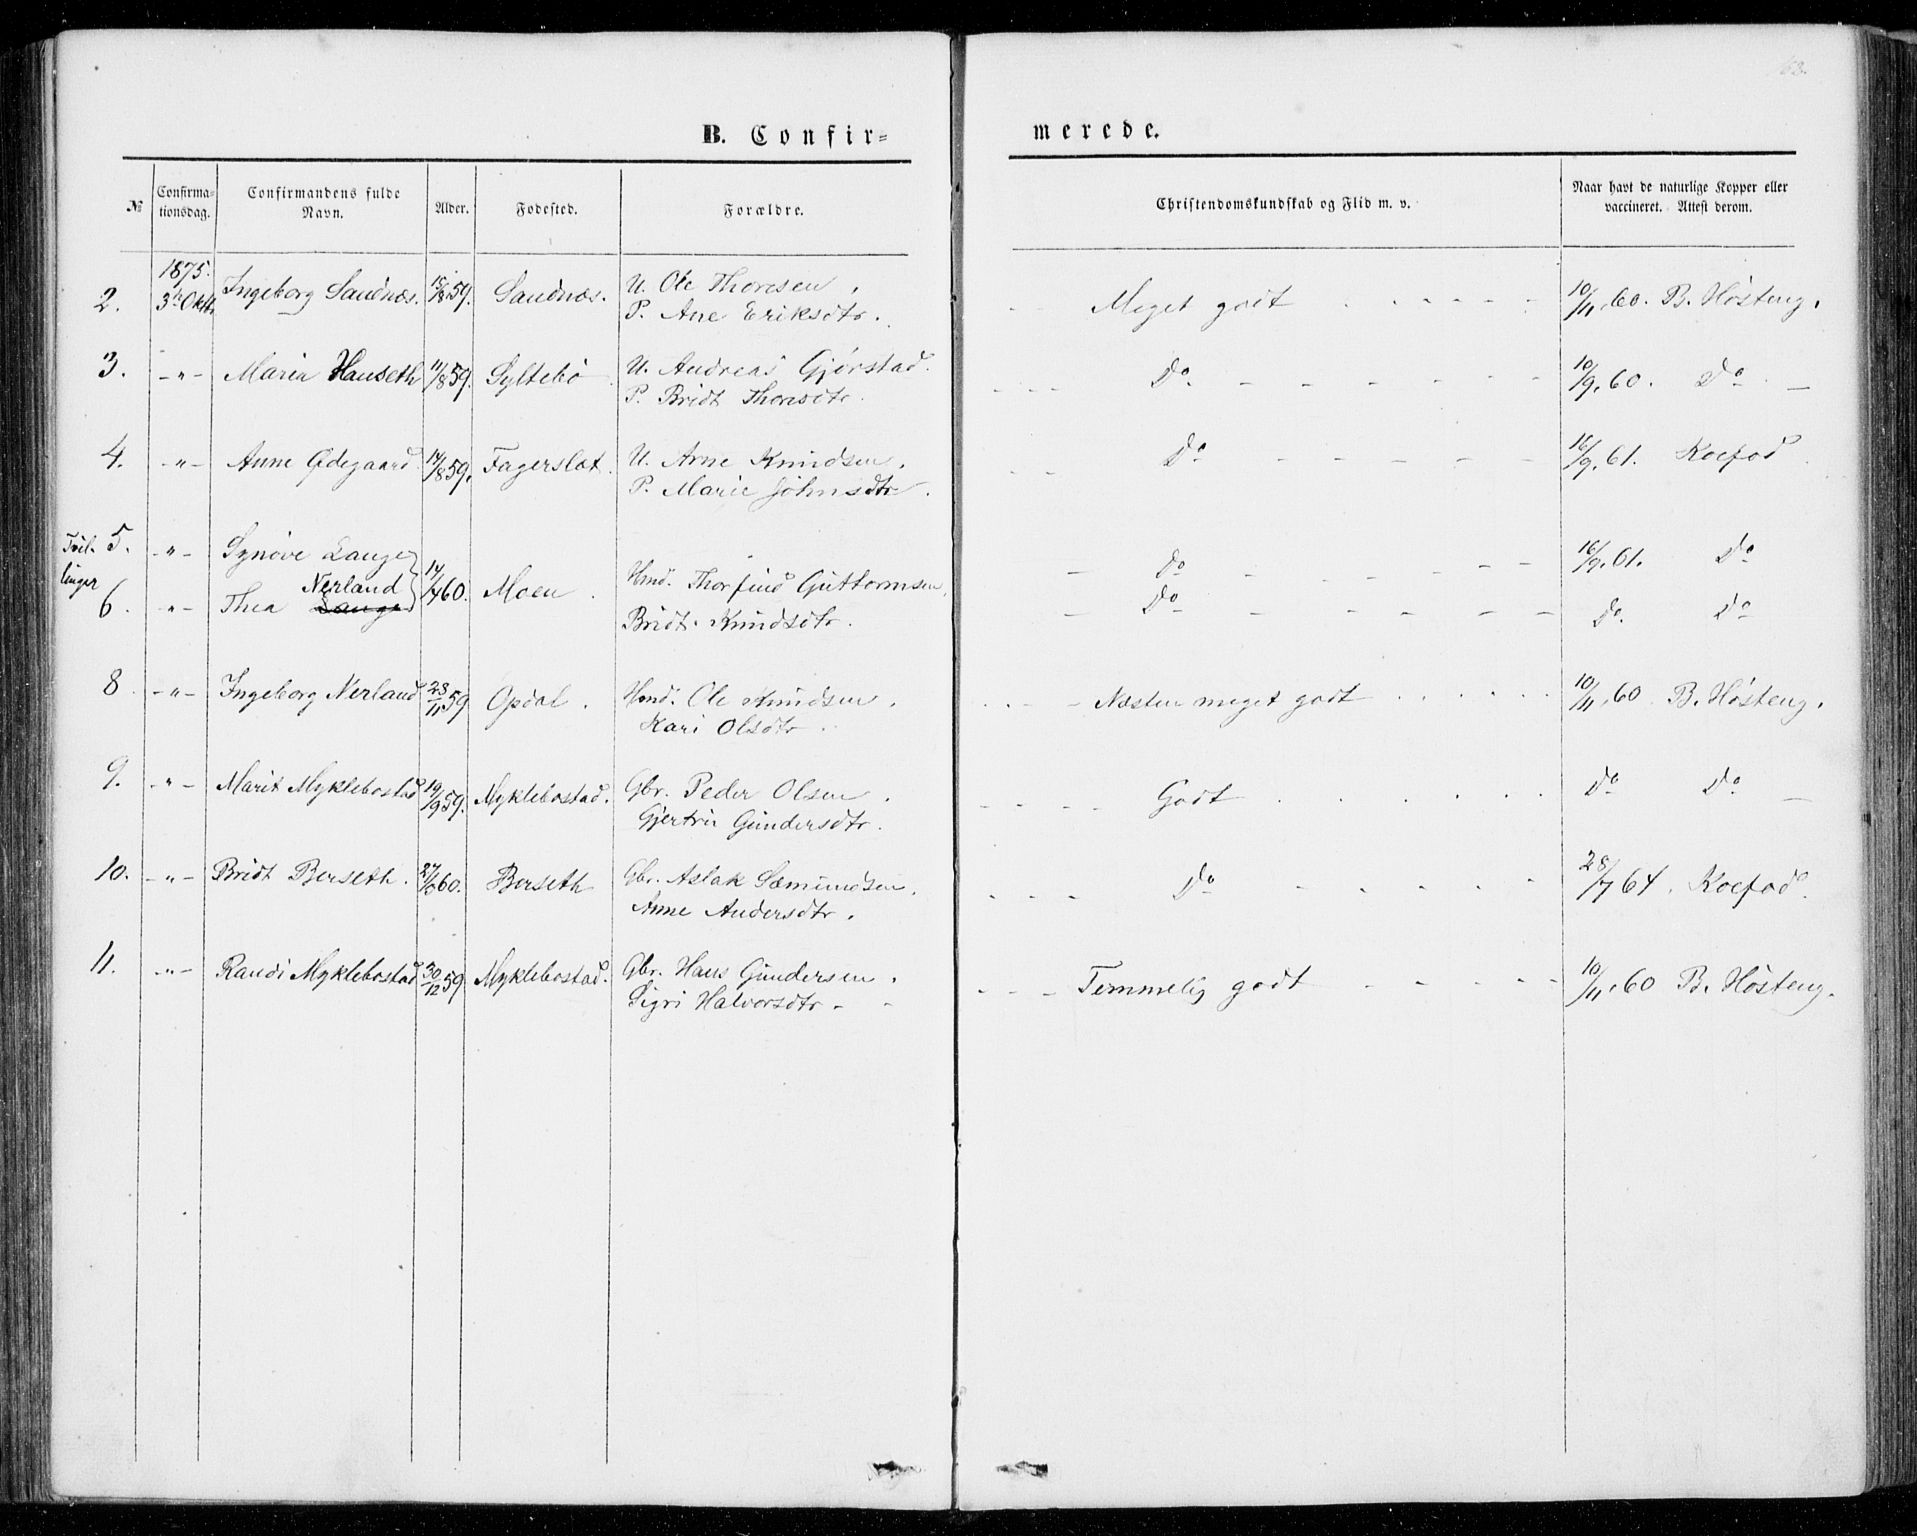 B. Confir-
merede.
№
Confirma-
tionsdag.
Confirmandens fulde
Navn.
Alder.
Fødested.
Forældre.
Christendomskundskab og Flid m. v.
Naar havt de naturlige Kopper eller
vaccineret. Attest derom.
1875.
2. 3die Oktb. Ingeborg Sandnæs. 15/8 59. Sandnæs. U. Ole Thoresen. Meget godt 10/11, 60. B. Hösteng.
P. Ane Eriksdtr.
3. -"- Maria Hauseth 11/8 59. Syltebö U. Andreas Gjörstad. Do. 10/9, 60. Do
P. Bridt Thoresdtr.
4. -"- Anne Ödegaard 14/8 59. Fagerslet. U. Arne Knudsen. Do 16/9, 61. Koefod
P. Marie Johnsdtr.
Tvil-
linger
5. -"- Synöve Lange 14/4 60. Moen. Hmd. Thorfind Guttormsen. Do 16/9, 61. Do
Nerland
6. -"- Thea Lange Bridt Knudsdtr. Do Do. Do
8. -"- Ingeborg Nerland 23/11 59 Opdal. Hmd. Ole Knudsen. Næsten meget godt 10/11, 60 B. Hösteng.
Kari Olsdtr.
9. -"- Marit Myklebostad 19/9 59. Myklebostad. Gbr. Peder Olsen. Godt Do Do
Gjertru Gundersdtr.
10. -"- Bridt Berseth. 60. Berseth Gbr. Aslak Sæmundsen. Do 28/7 64. Koefod.
Anne Andersdtr.
11. -"- Randi Myklebostad 30/12 59. Myklebostad. Gbr. Hans Gundersen. Temmelig godt 10/11, 60 B. Hösteng.
Sigri Halvorsdtr.